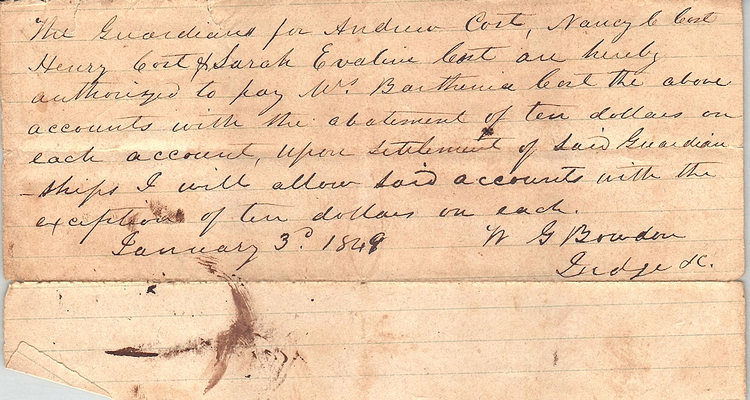 The Guardians for Andrew Cost, Nancy C Cost
Henry Cost & Sarah Evaline Cost are hereby
authorized to pay Mrs Barthenia Cost the above
accounts with the abatement of ten dollars on
each account, upon settlement of said Guardian
-ships I will allow said accounts with the
exception of ten dollars on each.
January 3d. 1849 W G Bowdon
Judge &c.